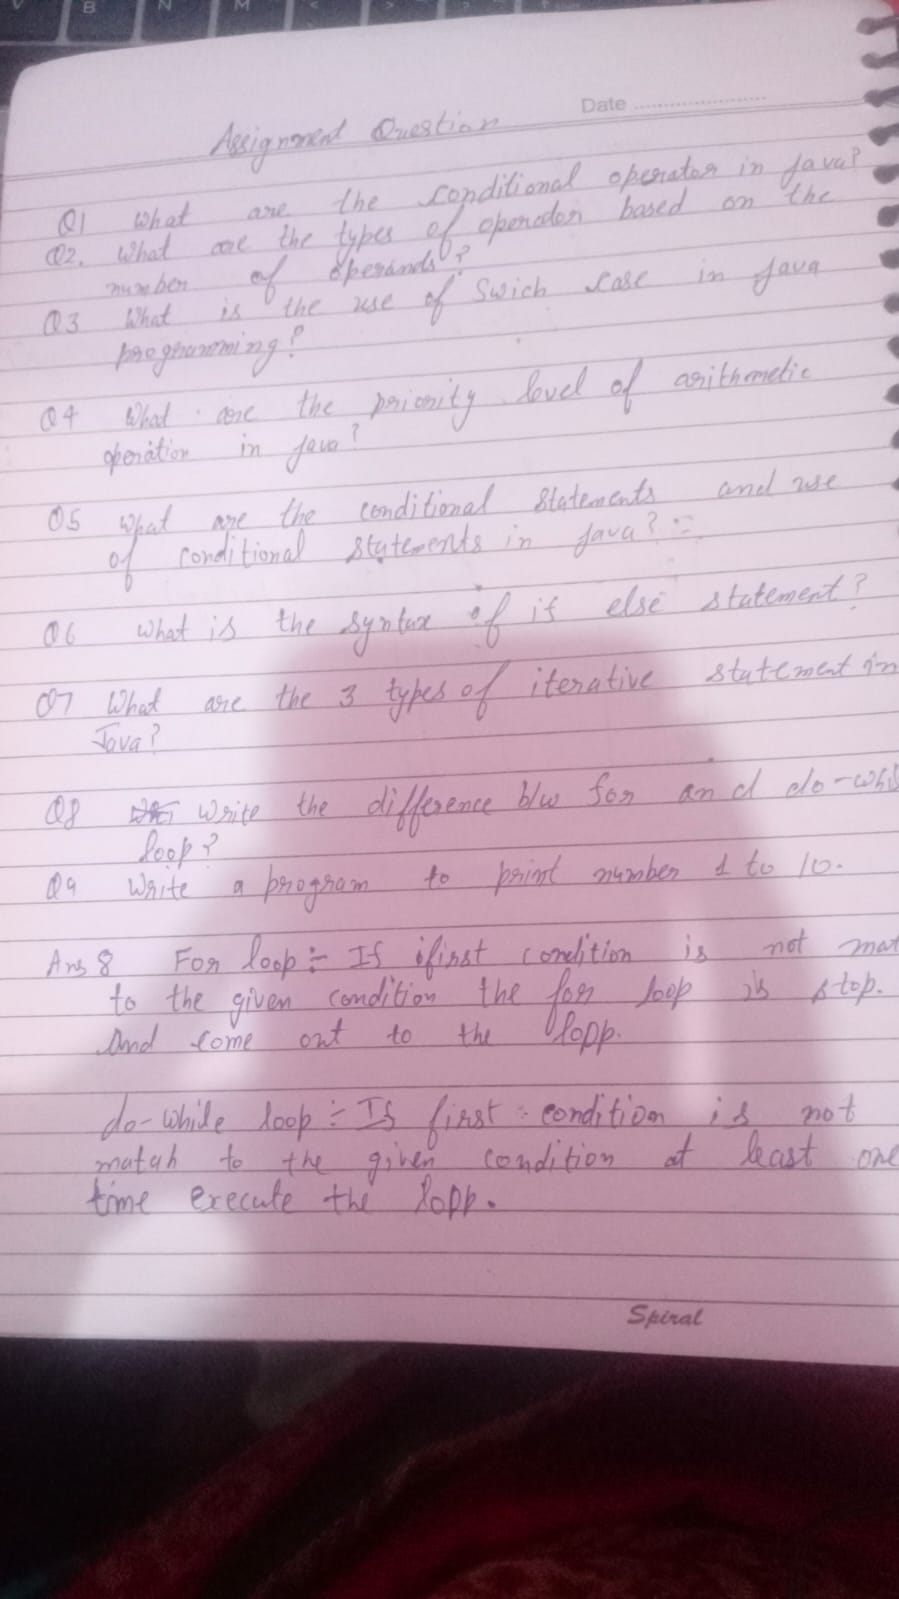 Date
Assignment Question
Q1 What are the conditional operator in java?
Q2. What are the types of operator based on the
number of operands?
Q3 What is the use of Swich case in java
programming?
Q4 What are the priority level of arithmetic
operation in java?
Q5 What are the conditional statements and use
of conditional statements in java?
Q6 What is the syntax of if else statement?
Q7 What are the 3 types of iterative statement in
Java?
Q8 Write the difference b/w for and do-whi
loop?
Q9 Write a program to print number 1 to 10.
Ans 8 For loop :- If first condition is not mat
to the given condition the for loop is stop.
And come out to the lopp.
do-while loop :- If first condition is not
matah to the given condition at least one
time execute the lopp.
Spiral